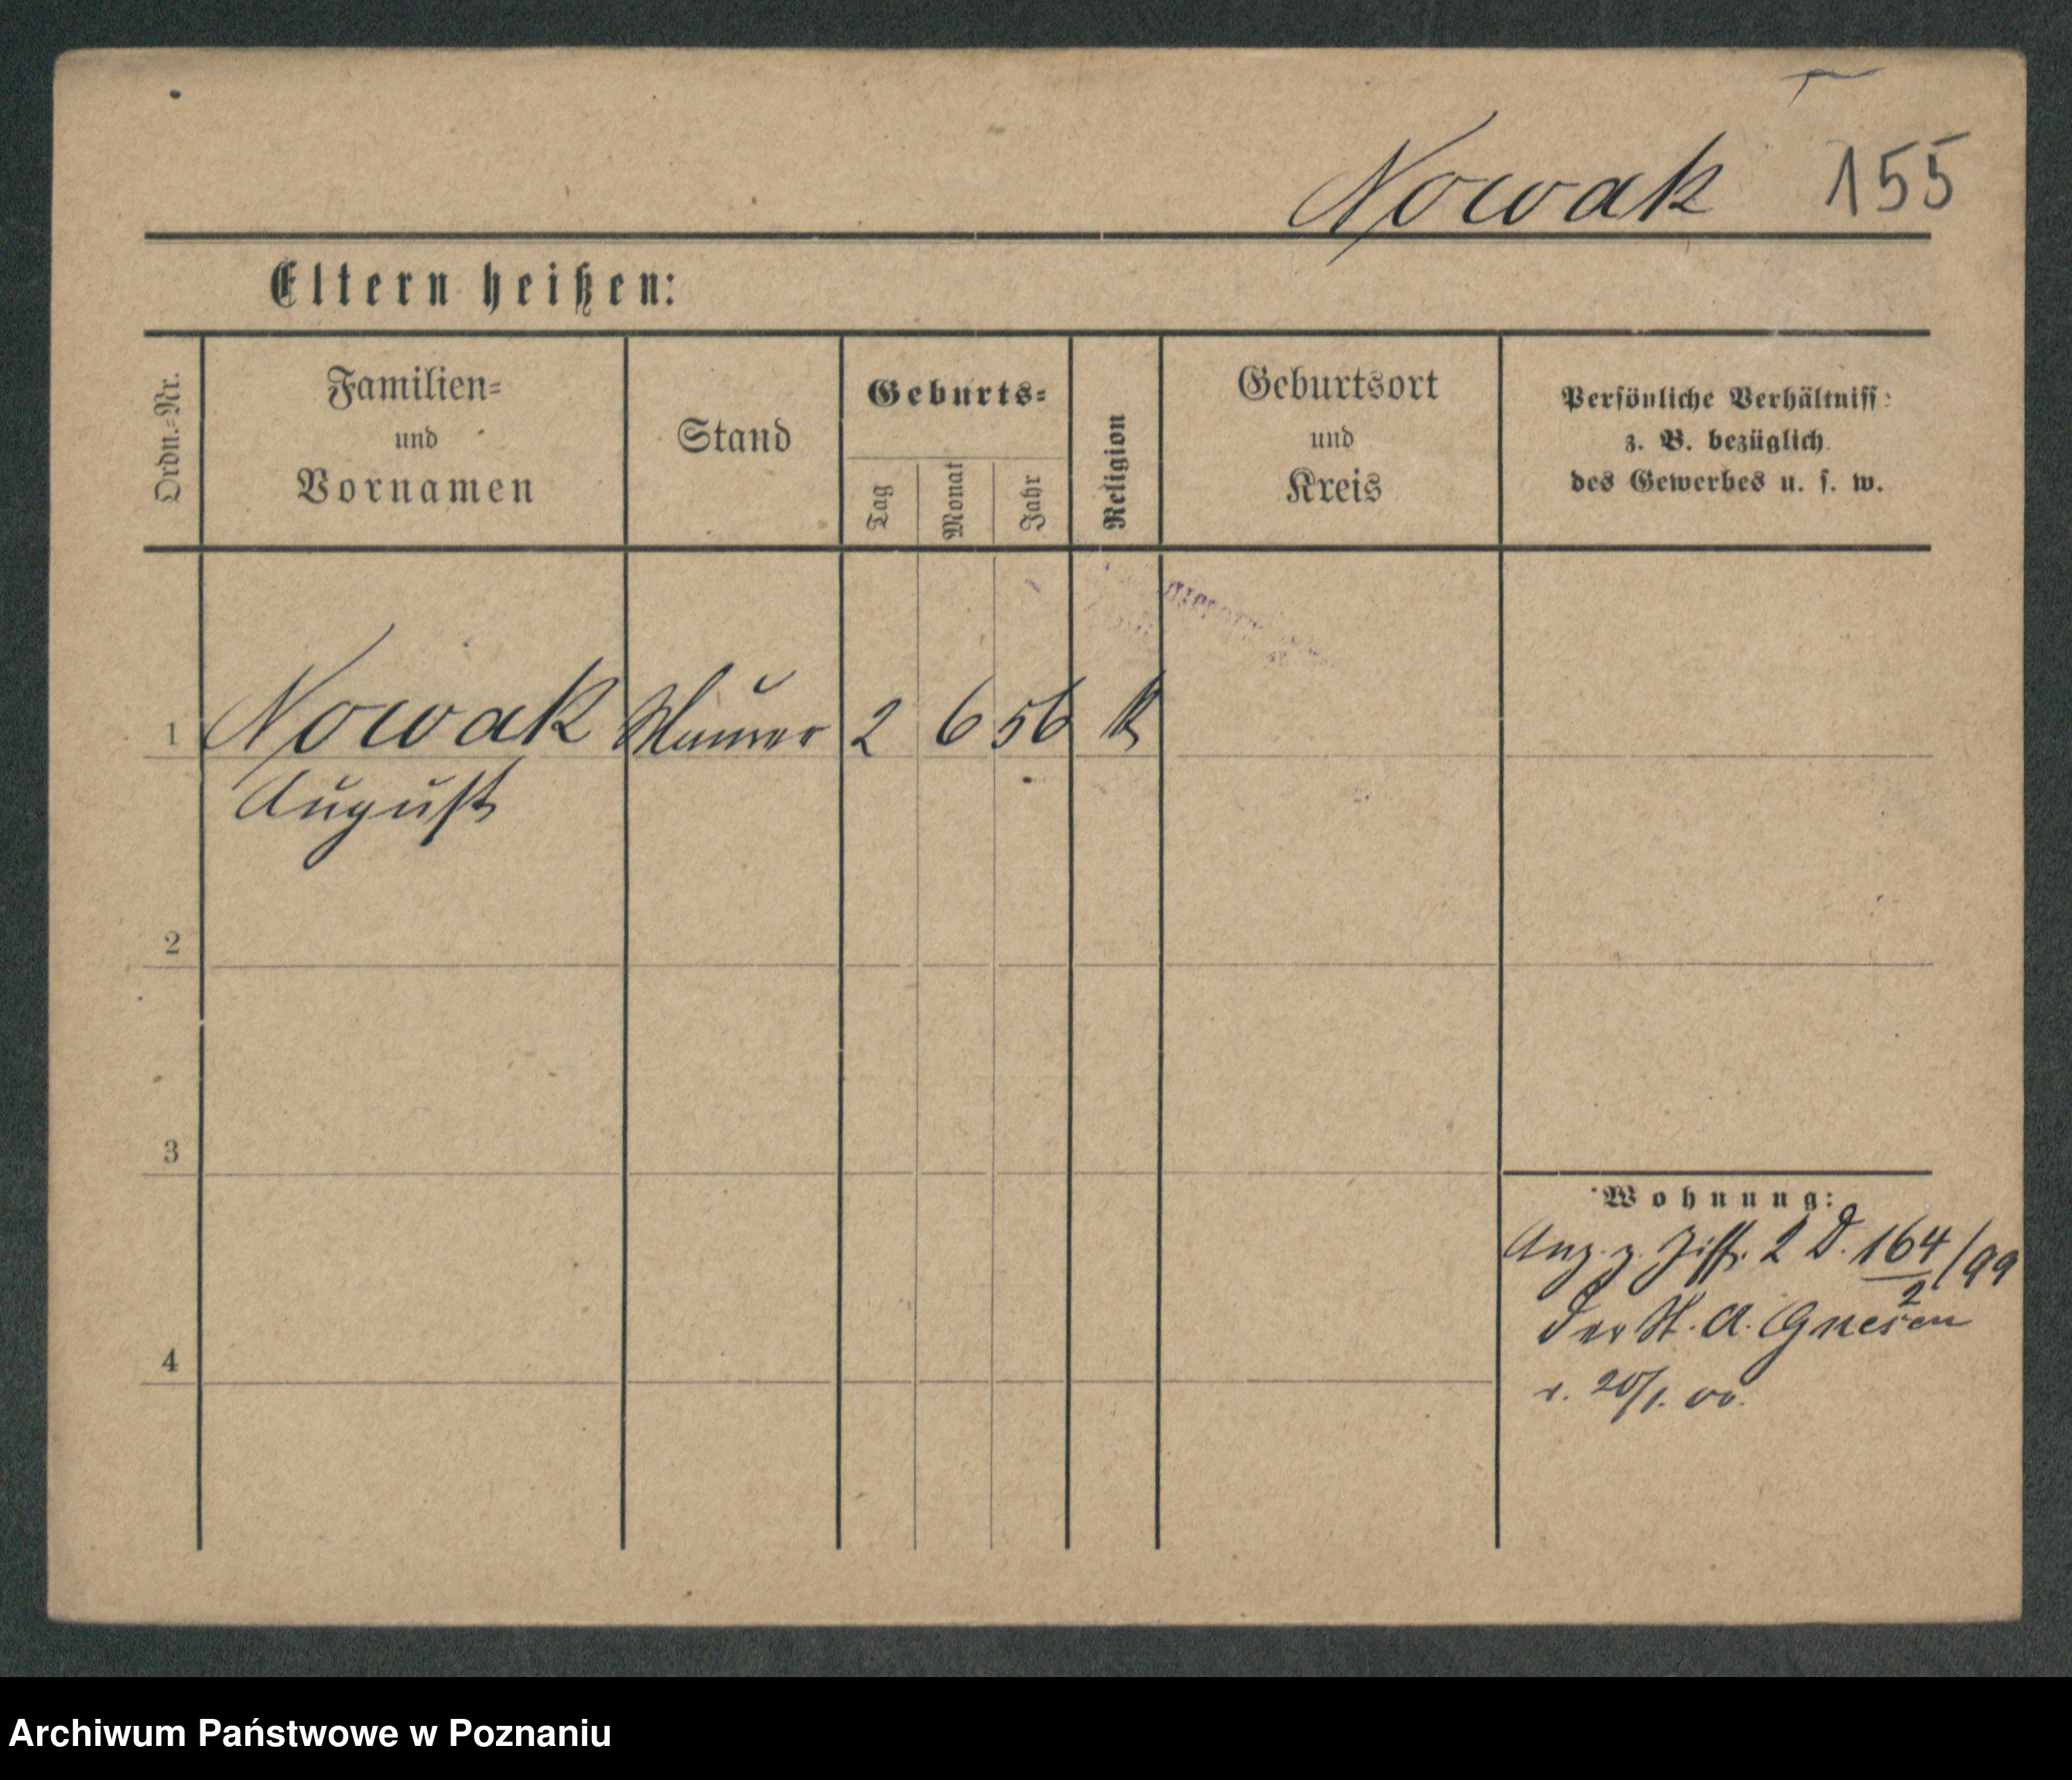 Nowak 155
Eltern heißen:
Ordn.=Nr.
Familien=
und
Vornamen
Stand
Geburts=
Tag
Monat
Jahr
Religion
Geburtsort
und
Kreis
Persönliche Verhältniss:
z. B. bezüglich
des Gewerbes u. s. w.
1 Nowak Maurer 2 6 56 K
August
2
3
Wohnung:
Anz. z. Ziff. 2 D. 164/99
2
der St. A. Gnesen
4
v. 20/1. 00.
Archiwum Państwowe w Poznaniu